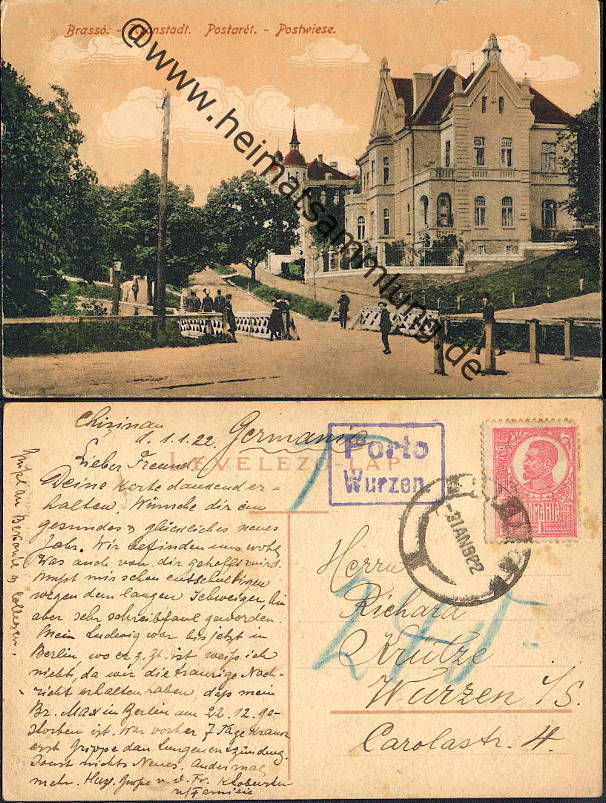 Brassó. - Kronstadt. Postarét. - Postwiese.
@www.heimatsammlung.de
Chizinau
d. 1.1.22
Germania
LEVELEZŐ-LAP
Porto
Wurzen
Lieber Freund
Deine Karte dankend er-
halten. Wünsche dir ein
gesundes & glückliches neues
Jahr. Wir befinden uns wohl
was auch von dir gehofft wird.
Mußt mir schon entschuldigen
wegen dem langen Schweigen, bin
aber sehr schreibfaul geworden.
Mein Ludwig war bis jetzt in
Berlin, wo er z. Zt. ist weiß ich
nicht, da wir die traurige Nach-
richt erhalten haben, daß mein
Br. Max in Berlin am 22.12. ge-
storben ist. War vorher 7 Tage krank
erst Grippe dann Lungenentzündung.
Sonst nichts Neues. Andermal
mehr. Herzl. Grüße v. d. Fr.
& Familie
-3 IAN 922
ROMANIA
Herrn
Richard
Krütze
Wurzen i/S.
Carolastr. 4.